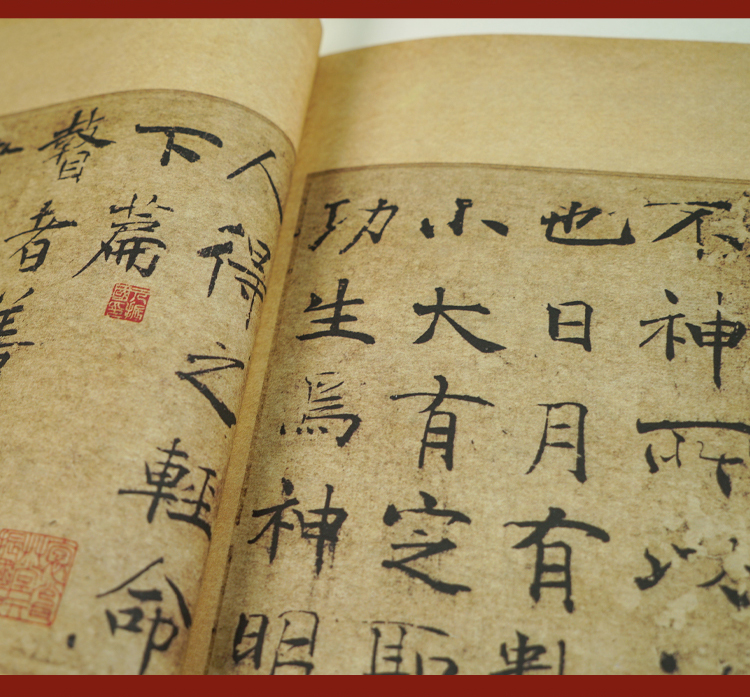 不神所以
也日月有
小大有定
功生焉神明
人得之輕命
下篇
瞽者善